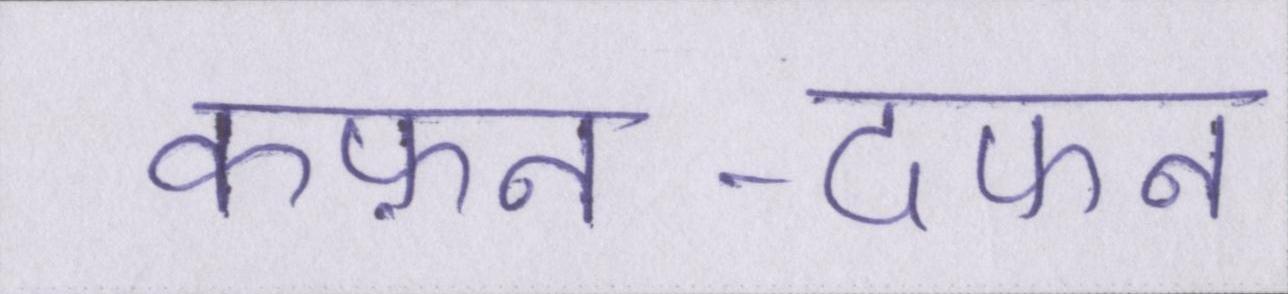 कफ़न -दफन